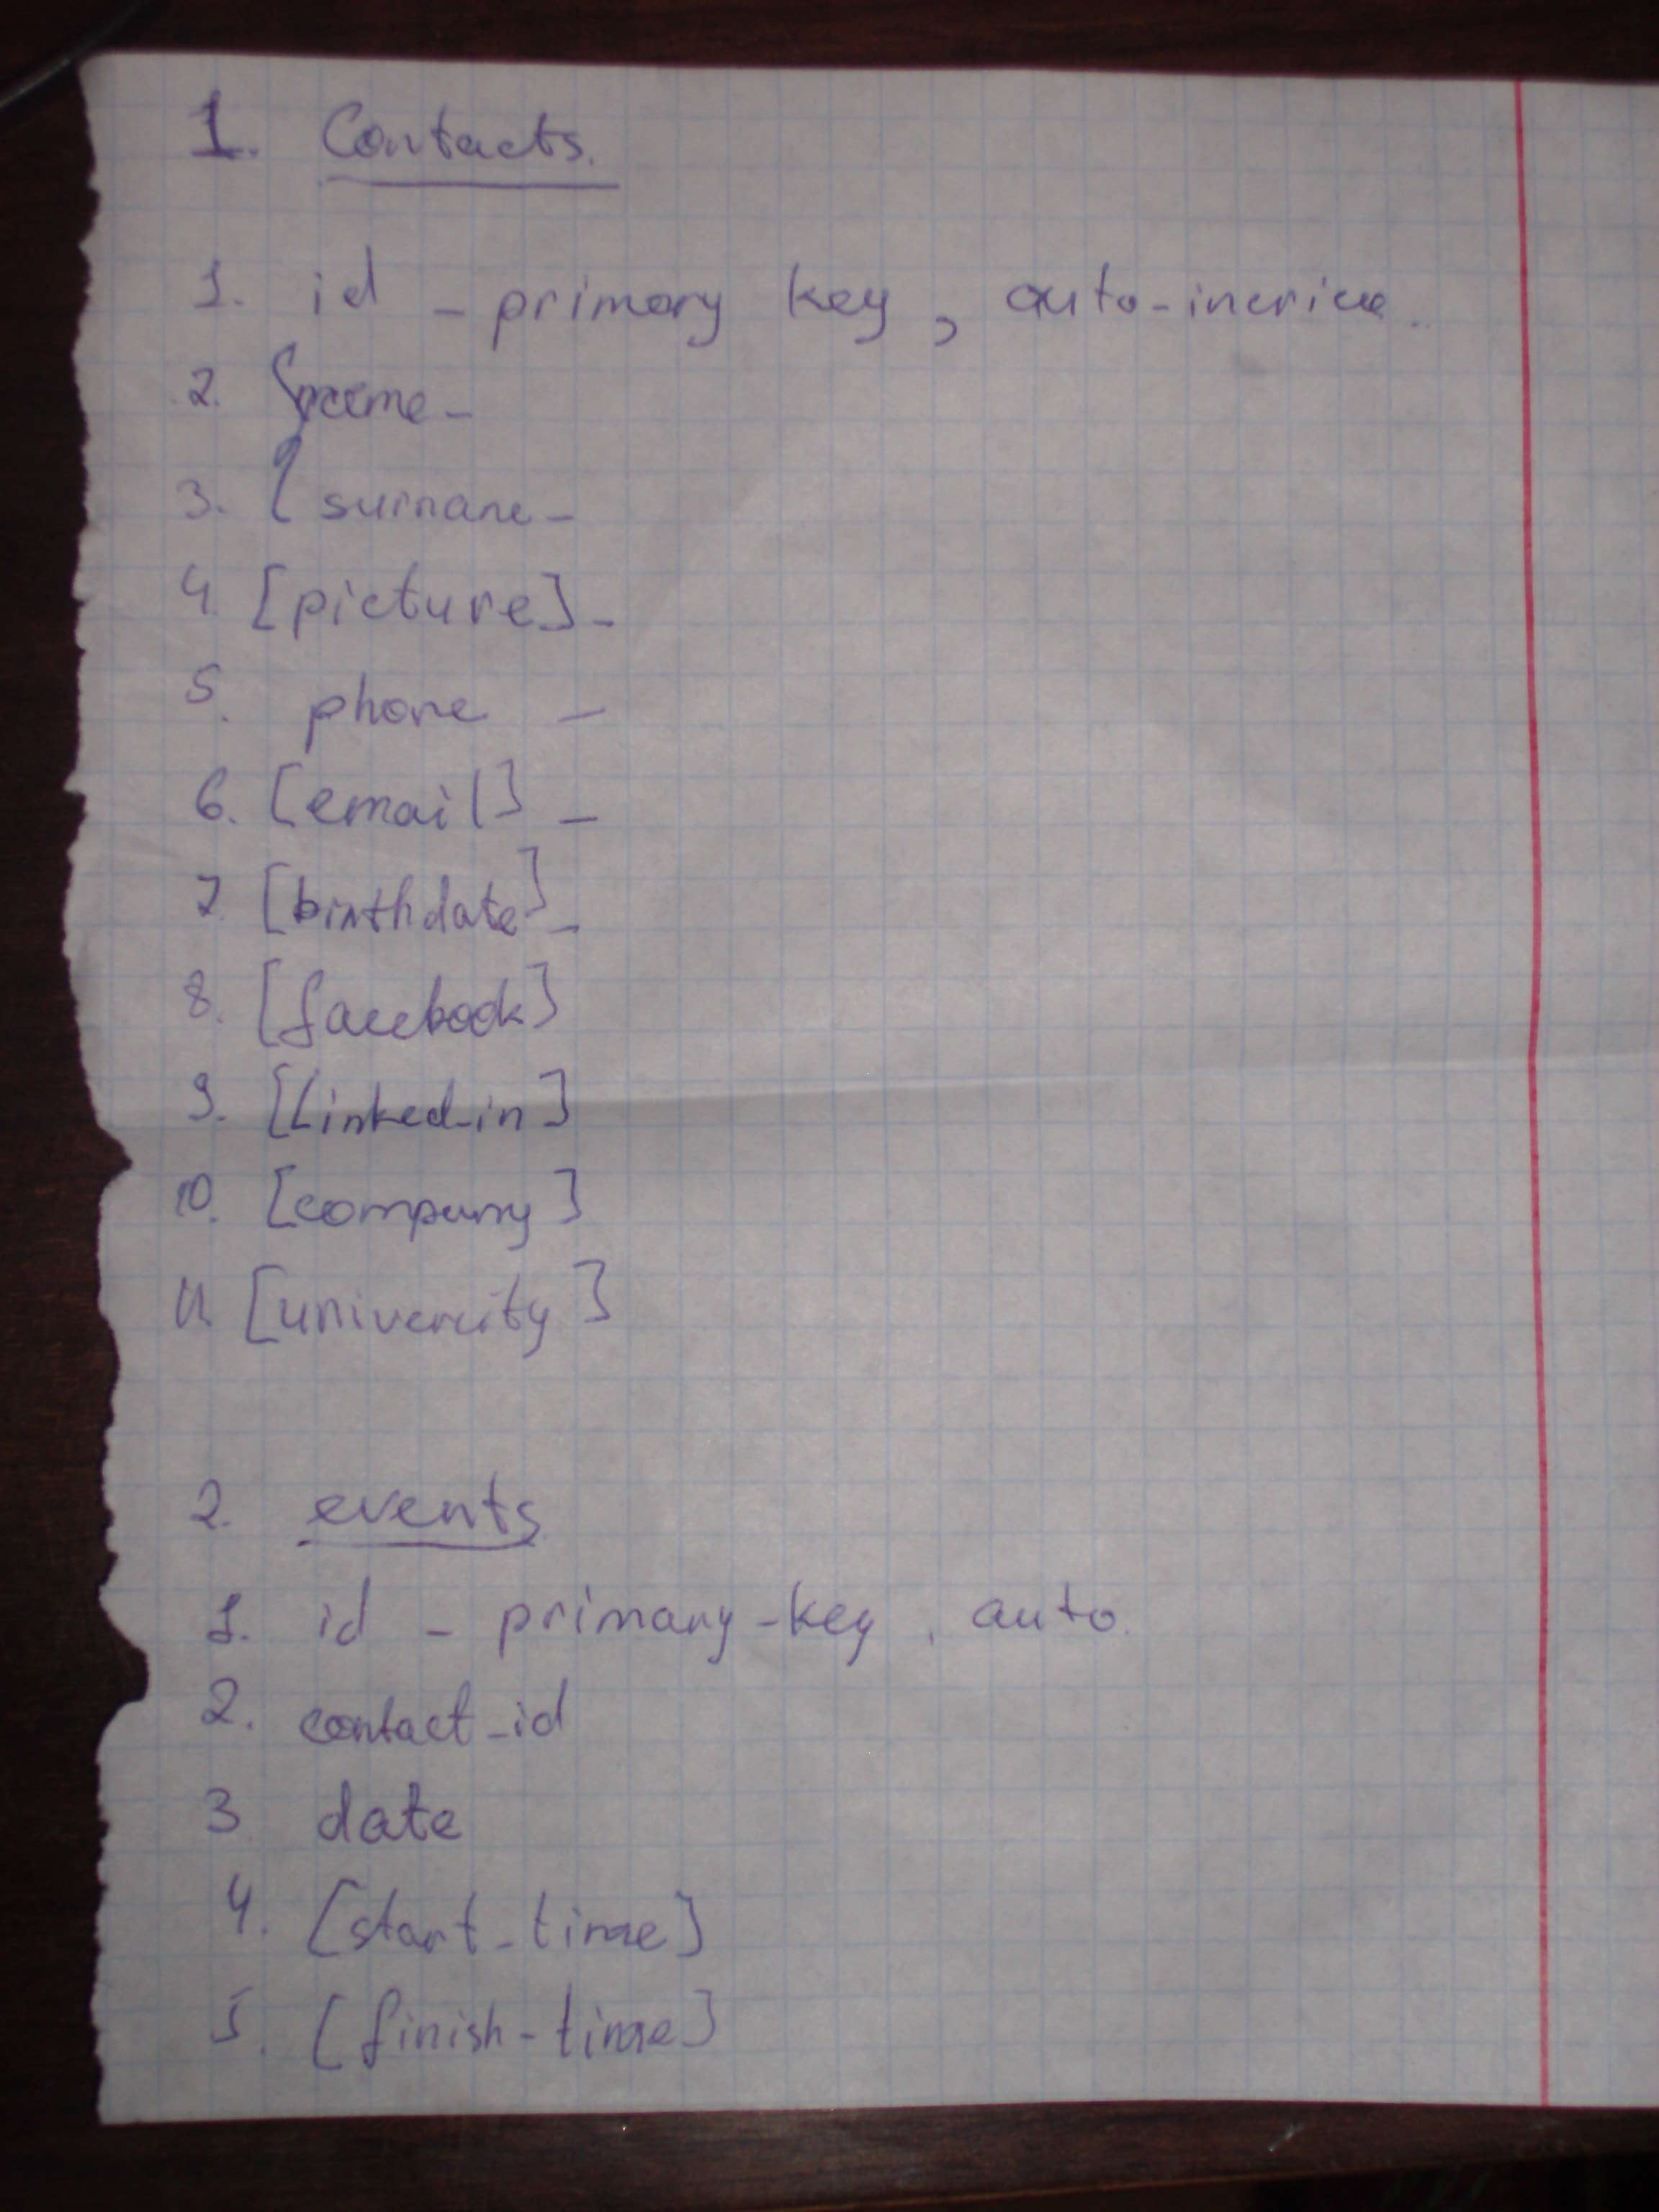 1. Contacts.
1. id - primary key, auto-incriee.
2. { name -
3. { surname -
4. [picture] -
5. phone -
6. [email] -
7. [birthdate] -
8. [facebook]
9. [Linked-in]
10. [company]
11. [univercity]
2. events
1. id - primary-key, auto.
2. contact_id
3 date
4. [start_time]
5. [finish-time]